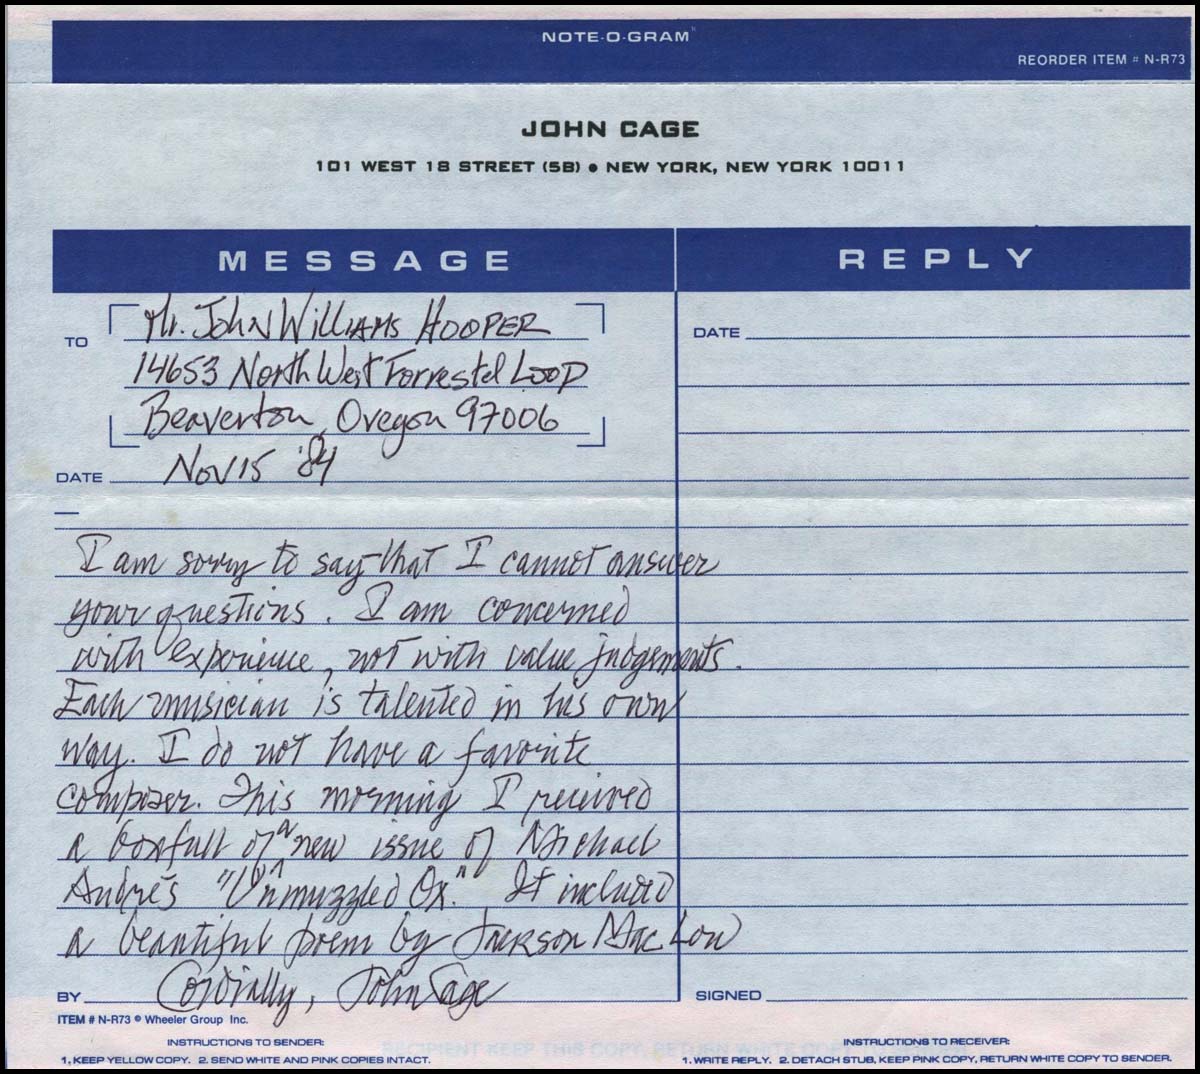 NOTE-O-GRAM
REORDER ITEM # N-R73
JOHN CAGE
101 WEST 18 STREET (5B) ● NEW YORK, NEW YORK 10011
MESSAGE
REPLY
TO
Mr. John Williams Hooper
14653 North West Forrestel Loop
Beaverton, Oregon 97006
DATE Nov 15 '84
I am sorry to say that I cannot answer
your questions. I am concerned
with experience, not with value judgements.
Each musician is talented in his own
way. I do not have a favorite
composer. This morning I received
a boxfull of a new issue of Michael
André's "Unmuzzled Ox." It included
a beautiful poem by Jackson Mac Low
BY Cordially, John Cage
ITEM # N-R73 © Wheeler Group Inc.
INSTRUCTIONS TO SENDER:
1. KEEP YELLOW COPY. 2. SEND WHITE AND PINK COPIES INTACT.
DATE
SIGNED
INSTRUCTIONS TO RECEIVER:
1. WRITE REPLY. 2. DETACH STUB, KEEP PINK COPY, RETURN WHITE COPY TO SENDER.